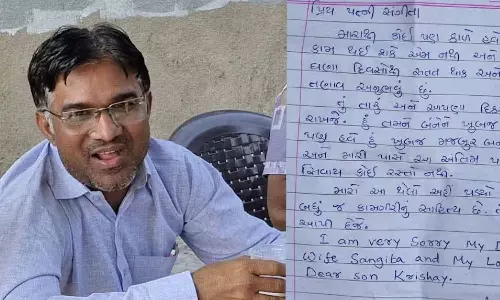 પ્રિય પત્ની સંગીતા
મારાથી કોઈ પણ કાળે હવે
કામ થઈ શકે એમ નથી અને
દિવસોથી સતત થાક અને
તણાવ અનુભવું છું.
તું તારું અને આપણા
રાખજે. હું તમને બંનેને ખુબજ
પણ હવે હું ખુબજ મજબૂર બન
અને મારી પાસે આ અંતિમ પ
સિવાય કોઈ રસ્તો નથી.
મારો આ થેલો અહીં પડ્યો
બધું જ કામગીરીનું સાહિત્ય છે.
આપી દેજો.
I am very Sorry My D
Wife Sangiba and My Lo
Dear son Krishay.